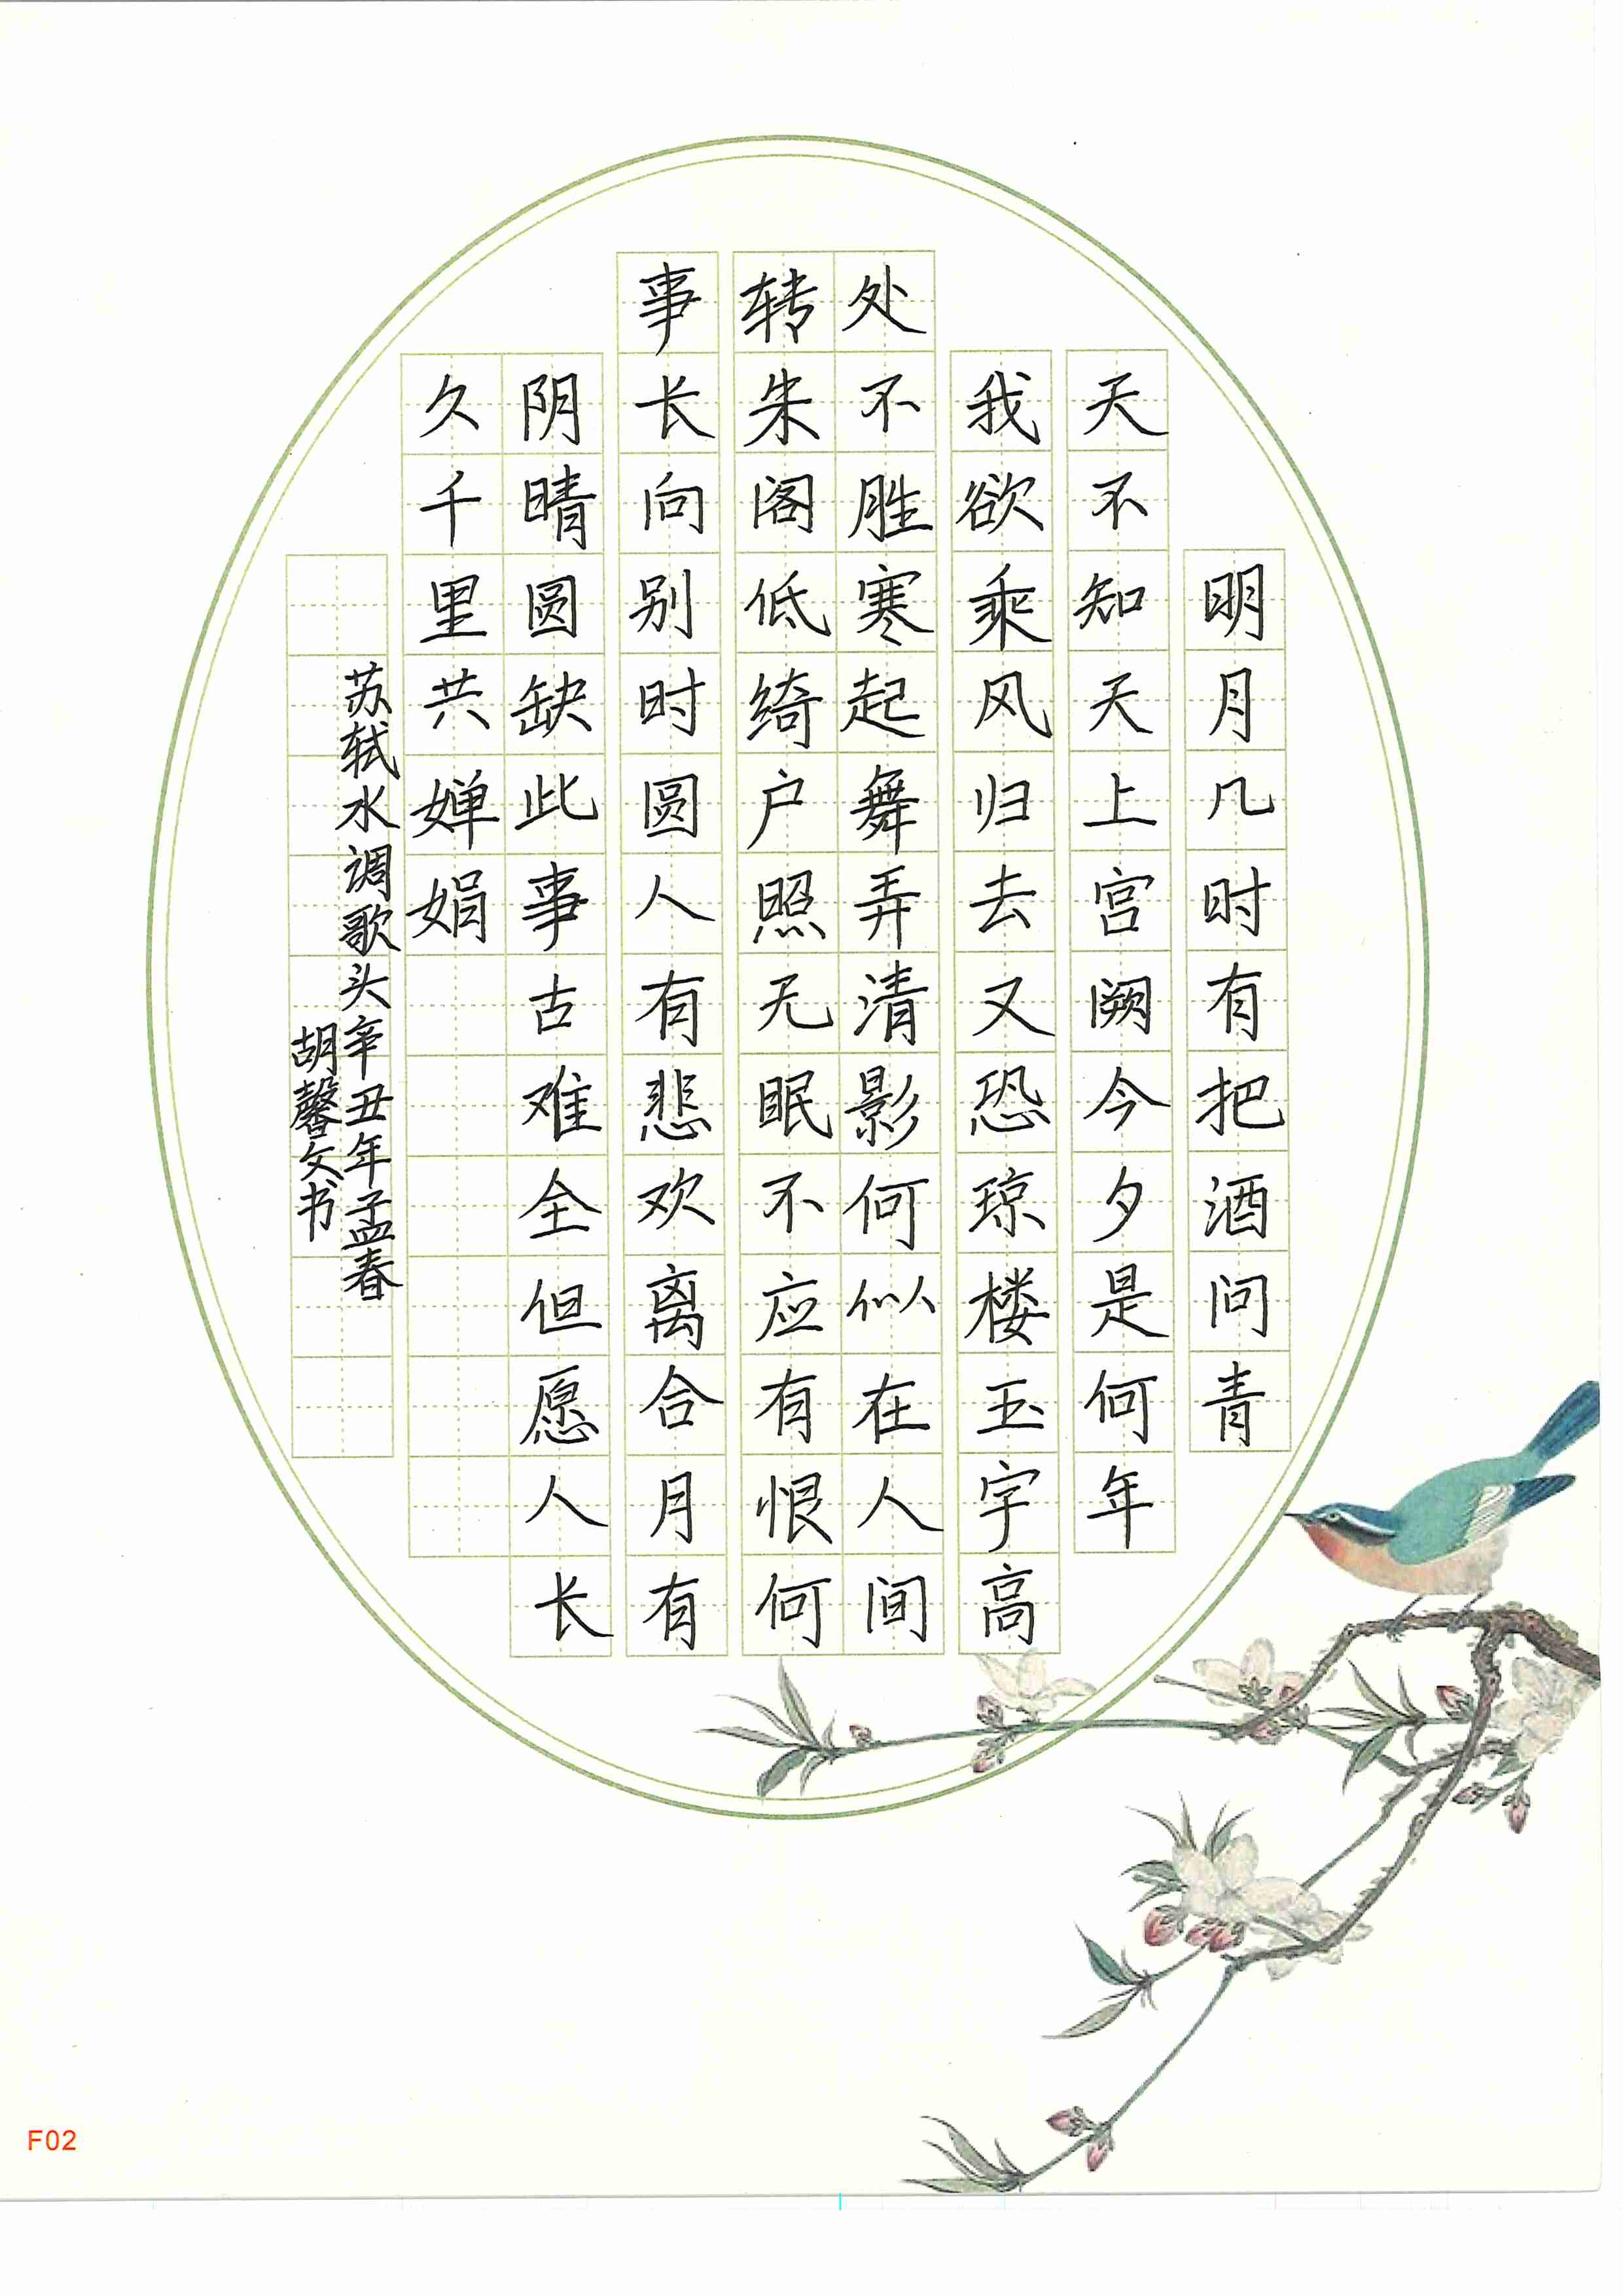 明月几时有把酒问青
天不知天上宫阙今夕是何年
我欲乘风归去又恐琼楼玉宇高
处不胜寒起舞弄清影何似在人间
转朱阁低绮户照无眠不应有恨何
事长向别时圆人有悲欢离合月有
阴晴圆缺此事古难全但愿人长
久千里共婵娟
苏轼水调歌头辛丑年孟春
胡馨文书
F02